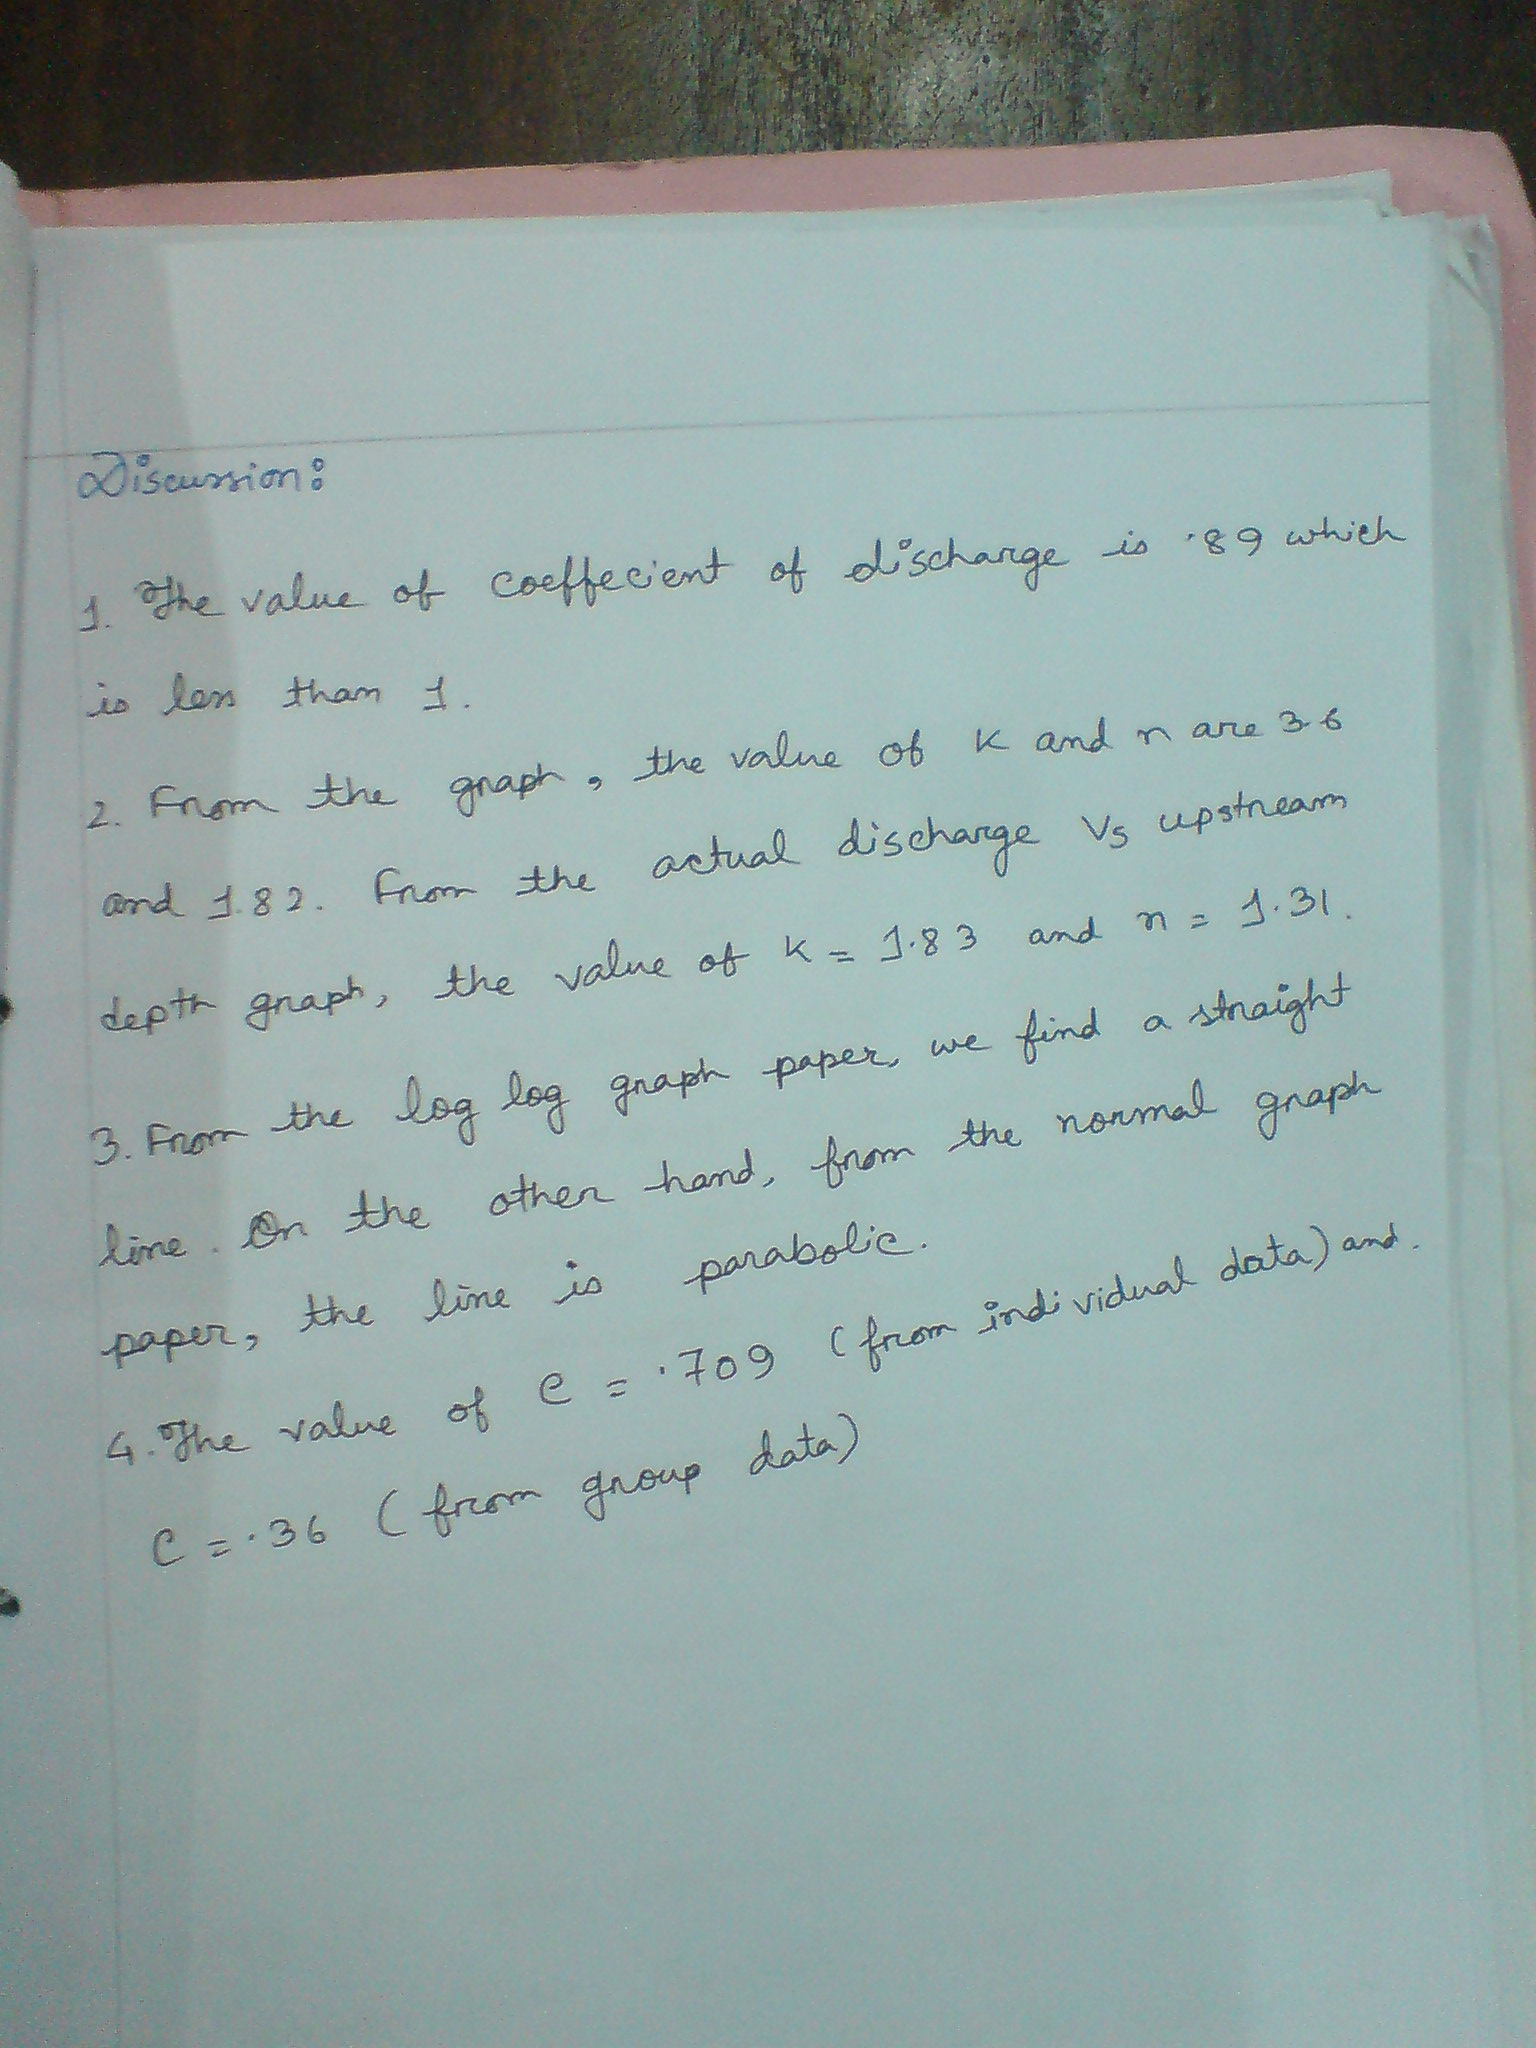 Discussion:
1. The value of coeffecient of discharge is .89 which
is less than 1.
2. From the graph, the value of K and n are 3.6
and 1.82. From the actual discharge Vs upstream
depth graph, the value of K = 1.83 and n = 1.31.
3. From the log log graph paper, we find a straight
line. On the other hand, from the normal graph
paper, the line is parabolic.
4. The value of C = .709 (from individual data) and.
C = .36 (from group data)